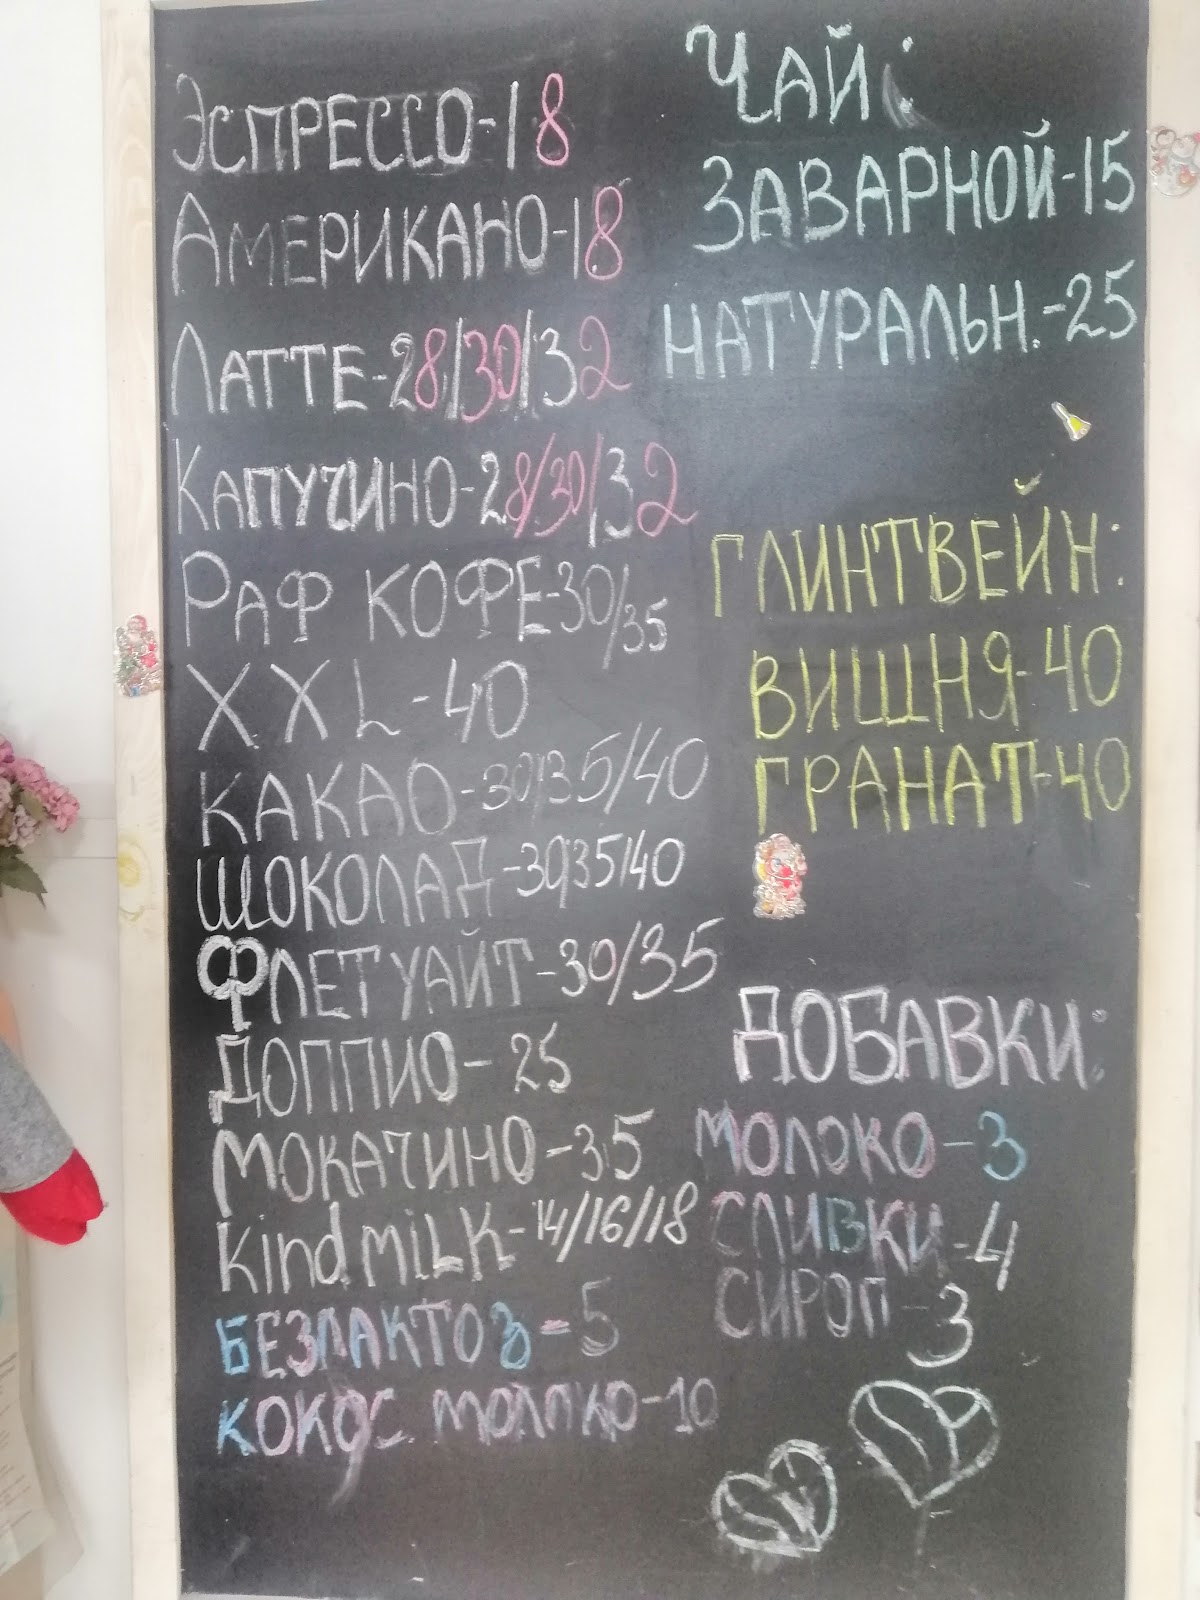 Эспрессо-18
Американо-18
Латте-28/30/32
Капучино-28/30/32
Раф кофе-30/35
XXL-40
Какао-30/35/40
Шоколад-30/35/40
Флетуайт-30/35
Доппио-25
Мокачино-35
Kind milk-14/16/18
Безлактоз-5
Кокос молоко-10
Чай:
Заварной-15
Натуральн.-25
Глинтвейн:
Вишня-40
Гранат-40
Добавки:
Молоко-3
Сливки-4
Сироп-3